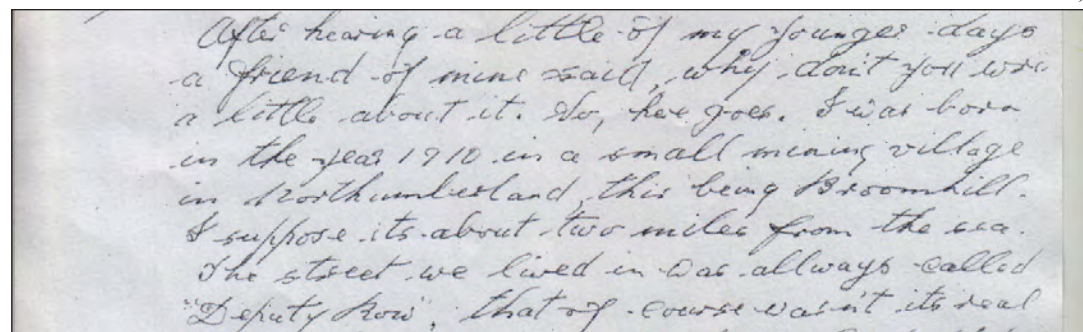 After hearing a little of my younger days
a friend of mine said, why don't you
a little about it. So, here goes. I was born
in the year 1910 in a small mining village
in Northumberland, this being Broomhill.
I suppose its about two miles from the sea.
The street we lived in was allways called
"Deputy Row", that of course wasn't its real